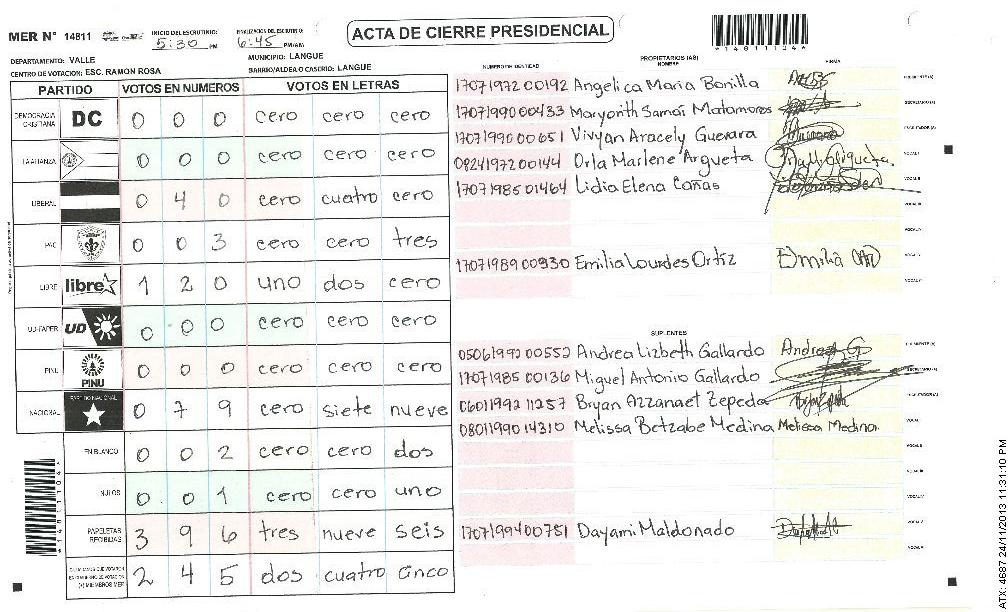 MER N° 14811
INICIO DEL ESCRUTINIO: 5:30 PM
FINALIZACION DEL ESCRUTINIO: 6:45 PM/AM
ACTA DE CIERRE PRESIDENCIAL
*14811104*
DEPARTAMENTO: VALLE
MUNICIPIO: LANGUE
CENTRO DE VOTACION: ESC. RAMON ROSA
BARRIO/ALDEA O CASERIO: LANGUE
PARTIDO VOTOS EN NUMEROS VOTOS EN LETRAS
DEMOCRACIA CRISTIANA DC 0 0 0 cero cero cero
LA ALIANZA 0 0 0 cero cero cero
LIBERAL 0 4 0 cero cuatro cero
PAC 0 0 3 cero cero tres
LIBRE libre 1 2 0 uno dos cero
UD-FAPER UD 0 0 0 cero cero cero
PINU PINU 0 0 0 cero cero cero
NACIONAL PARTIDO NACIONAL 0 7 9 cero siete nueve
EN BLANCO 0 0 2 cero cero dos
NULOS 0 0 1 cero cero uno
PAPELETAS RECIBIDAS 3 9 6 tres nueve seis
2 4 5 dos cuatro cinco
*14811104*
NUMERO DE IDENTIDAD PROPIETARIOS (AS) NOMBRE FIRMA
1707197200192 Angelica Maria Bonilla
1707199000433 Maryonth Samai Matamoros
1707199000651 Vivyan Aracely Guevara
0824197200144 Orla Marlene Argueta
1707198501464 Lidia Elena Cañas
1707198900930 Emilia Lourdes Ortiz Emilia
SUPLENTES
0506199200552 Andrea Lizbeth Gallardo Andrea G
1707198500136 Miguel Antonio Gallardo
0601199211257 Bryan Azzanaet Zepeda
0801199014310 Melissa Betzabe Medina Melissa Medina.
1707199400751 Dayami Maldonado
ATX: 4687 24/11/2013 11:31:10 PM